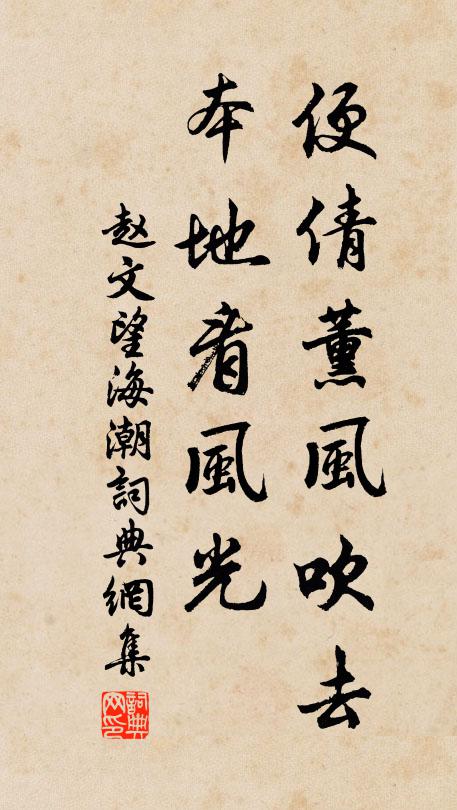 便倩薰風吹去
本地看風光
赵文望海潮詞典網集
詞典
网印